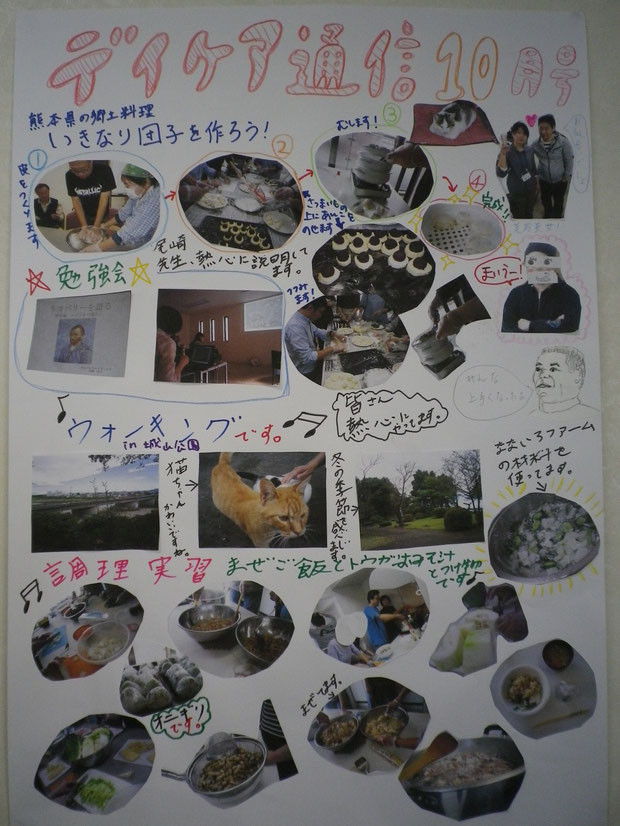 デイケア通信10月号
熊本県の郷土料理
いきなり団子を作ろう!
①
皮をつくります
②
③
むします!
さつまいもの
上にあんこを
のせます
④
完成!!
尾崎
先生、熱心に説明して
ます。
つつみ
ます!
METALLICA
まいうー!
勉強会
皆さん
熱心に
やってます。
みんな
上手くなったな
ウォーキングです。
in 城山公園
猫ちゃん
かわいいですね。
冬の季節を
感じます。
なないろファーム
の材料を
使ってます。
調理実習
まぜご飯とトウガンのみそ汁
とつけ物
です
オニギリ
です
まぜてます。